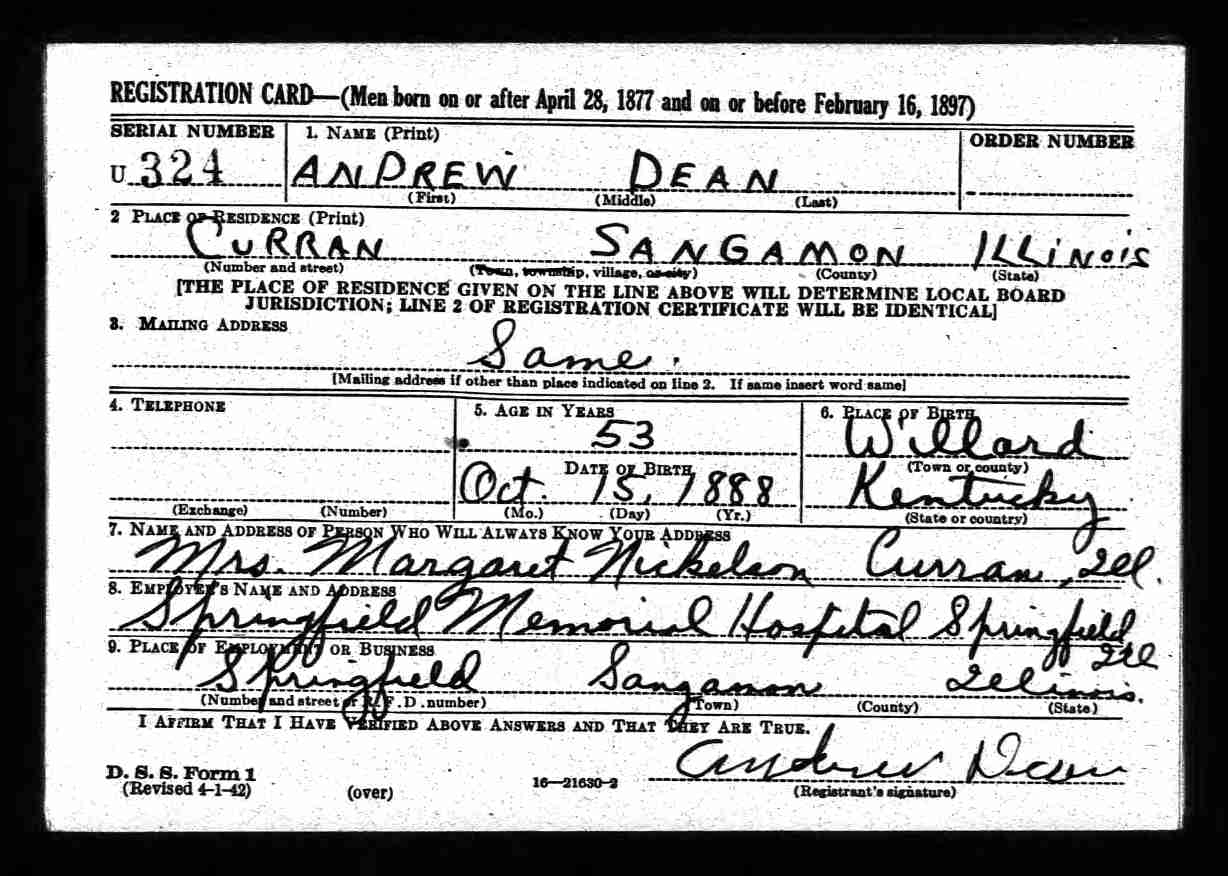 REGISTRATION CARD—(Men born on or after April 28, 1877 and on or before February 16, 1897)
SERIAL NUMBER 1. NAME (Print) ORDER NUMBER
U 324 ANDREW DEAN
(First) (Middle) (Last)
2 PLACE OF RESIDENCE (Print)
CURRAN SANGAMON ILLINOIS
(Number and street) (Town, township, village, or city) (County) (State)
[THE PLACE OF RESIDENCE GIVEN ON THE LINE ABOVE WILL DETERMINE LOCAL BOARD
JURISDICTION; LINE 2 OF REGISTRATION CERTIFICATE WILL BE IDENTICAL]
3. MAILING ADDRESS
Same.
[Mailing address if other than place indicated on line 2. If same insert word same]
4. TELEPHONE 5. AGE IN YEARS 6. PLACE OF BIRTH
53 Willard
DATE OF BIRTH (Town or county)
Oct. 15, 1888 Kentucky
(Exchange) (Number) (Mo.) (Day) (Yr.) (State or country)
7. NAME AND ADDRESS OF PERSON WHO WILL ALWAYS KNOW YOUR ADDRESS
Mrs. Margaret Nickelson Curran, Ill.
8. EMPLOYER'S NAME AND ADDRESS
Springfield Memorial Hospital Springfield
Ill
9. PLACE OF EMPLOYMENT OR BUSINESS
Springfield Sangamon Illinois.
(Number and street or R. F. D. number) (Town) (County) (State)
I AFFIRM THAT I HAVE VERIFIED ABOVE ANSWERS AND THAT THEY ARE TRUE.
Andrew Dean
D. S. S. Form 1
(Revised 4-1-42) (over) 16—21630-2 (Registrant's signature)